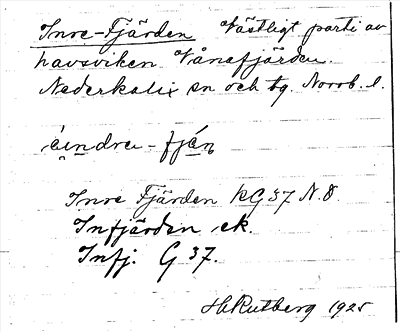 Inre-Fjärden Västligt parti av
havsviken Vånafjärden.
Nederkalix sn och tg. Norrb. l.
èindra-fjén
Inre Fjärden RG 37 N.O.
Infjärden ek.
Infj. G 37.
H. Rutberg 1925